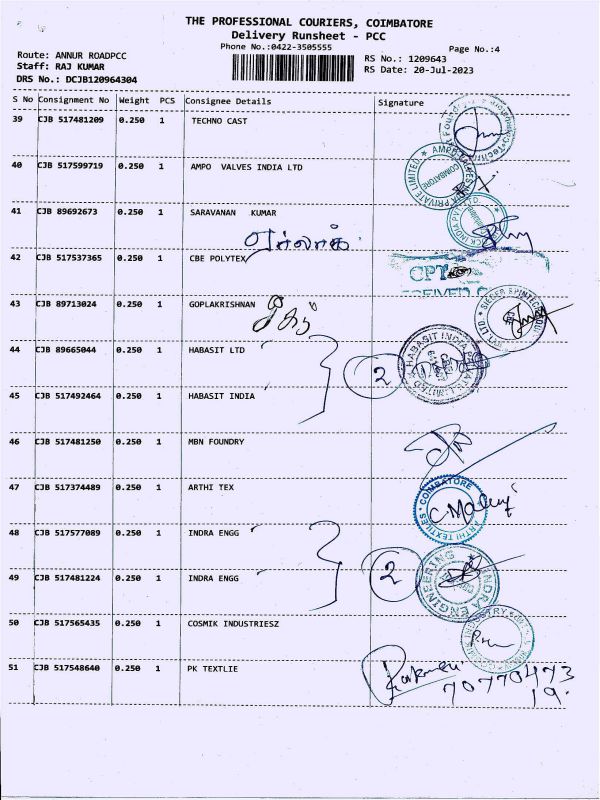 THE PROFESSIONAL COURIERS, COIMBATORE
Delivery Runsheet - PCC
Phone No.:0422-3505555
Page No.:4
Route: ANNUR ROADPCC
Staff: RAJ KUMAR
DRS No.: DCJB120964304
RS No.: 1209643
RS Date: 20-Jul-2023
S No Consignment No Weight PCS Consignee Details Signature
39 CJB 517481209 0.250 1 TECHNO CAST
40 CJB 517599719 0.250 1 AMPO VALVES INDIA LTD
COIMBATORE
41 CJB 89692673 0.250 1 SARAVANAN KUMAR
42 CJB 517537365 0.250 1 CBE POLYTEX
43 CJB 89713024 0.250 1 GOPLAKRISHNAN
44 CJB 89665044 0.250 1 HABASIT LTD
2
HABASIT INDIA PRIVATE LIMITED
45 CJB 517492464 0.250 1 HABASIT INDIA
46 CJB 517481250 0.250 1 MBN FOUNDRY
47 CJB 517374489 0.250 1 ARTHI TEX
ARTHI TEXTILES COIMBATORE
48 CJB 517577089 0.250 1 INDRA ENGG
2
INDRA ENGINEERING
49 CJB 517481224 0.250 1 INDRA ENGG
50 CJB 517565435 0.250 1 COSMIK INDUSTRIESZ
51 CJB 517548640 0.250 1 PK TEXTLIE
70770473
19.